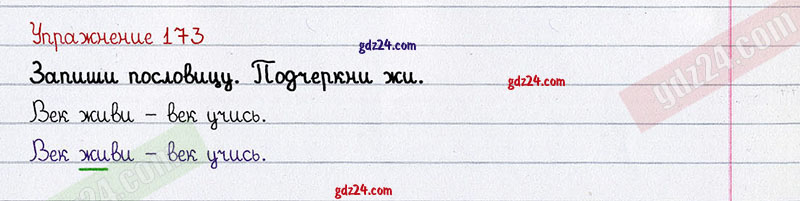 Упражнение 173
gdz24.com
Запиши пословицу. Подчеркни жи.
gdz24.com
Век живи – век учись.
Век живи – век учись.
gdz24.com
gdz24.com
gdz24.com